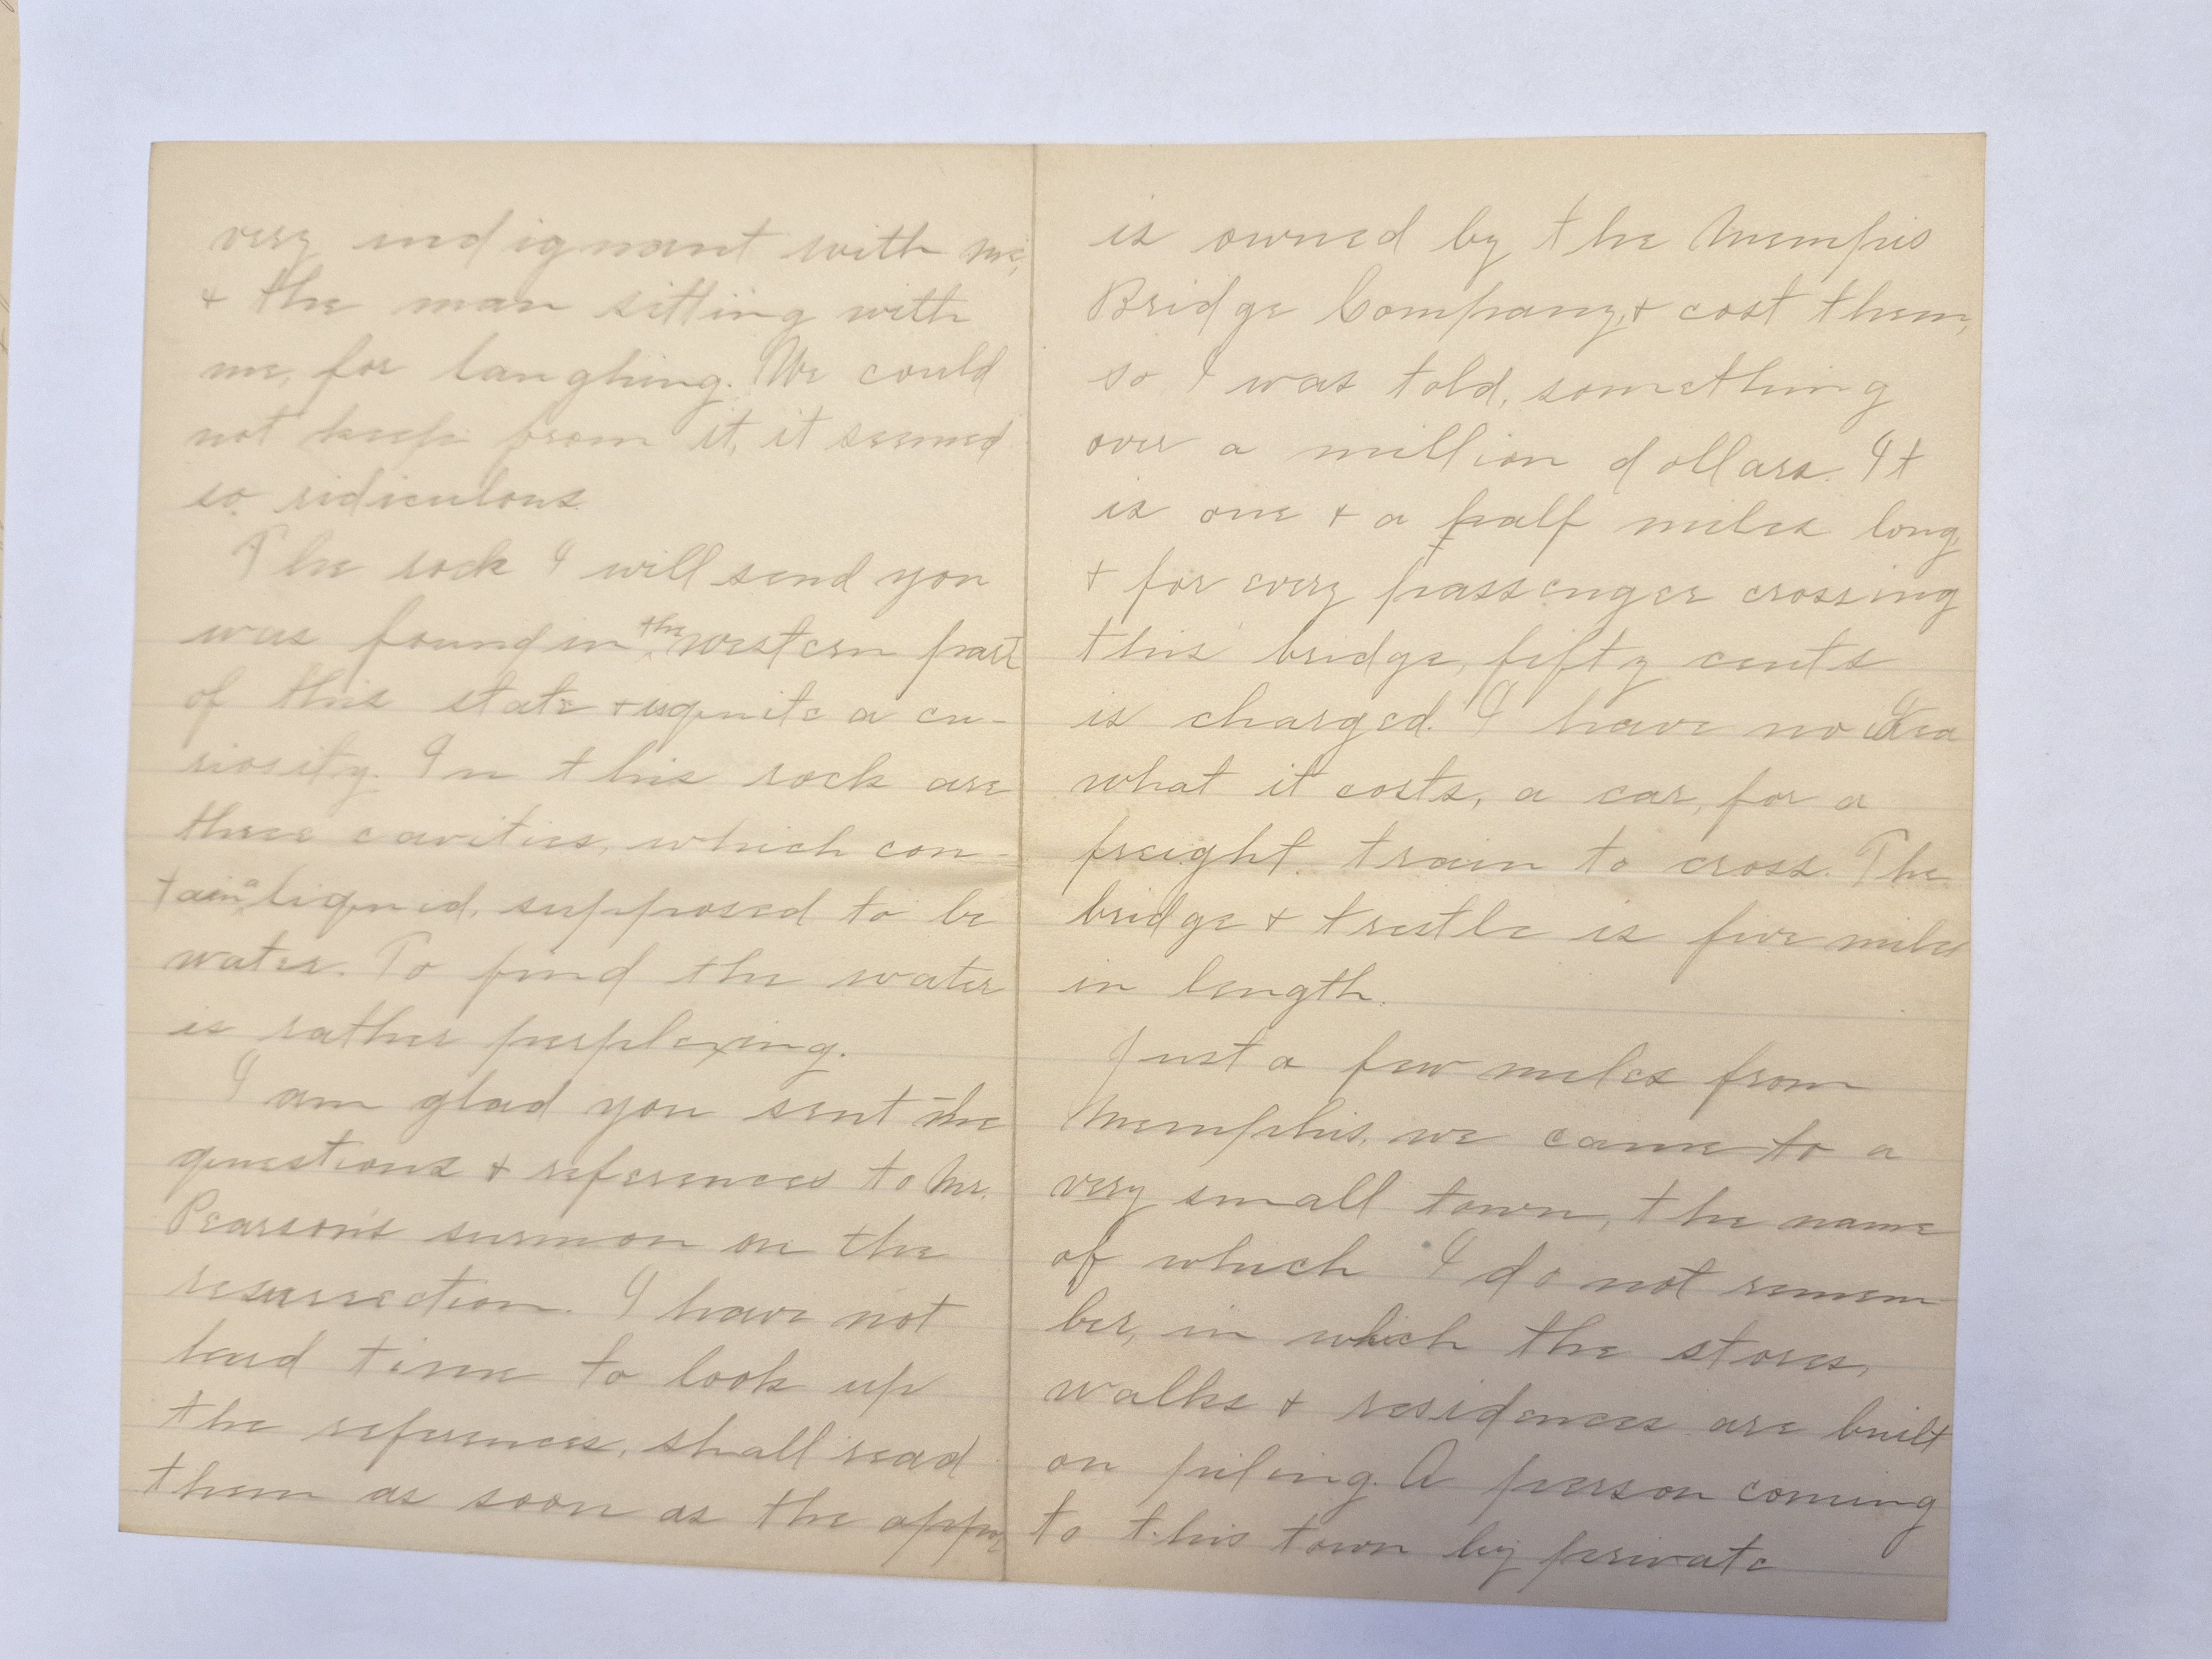 very indignant with me,
+ the man sitting with
me, for laughing. We could
not keep from it, it seemed
so ridiculous.
The rock I will send you
was found in the western part
of this state + is quite a cu-
riosity. In this rock are
three cavities, which con-
tain a liquid, supposed to be
water. To find the water
is rather perplexing.
I am glad you sent the
questions + references to Mr.
Pearson's surmon on the
resurrection. I have not
had time to look up
the references, shall read
them as soon as the oppor
is owned by the Memphis
Bridge Company, + cost them,
so I was told, something
over a million dollars. It
is one + a half miles long,
+ for every passenger crossing
this bridge, fifty cents
is charged. I have no idea
what it costs, a car, for a
freight train to cross. The
bridge + trestle is five miles
in length.
Just a few miles from
Memphis, we came to a
very small town, the name
of which I do not remem-
ber, in which the stores,
walks + residences are built
on piling. A person coming
to this town by private